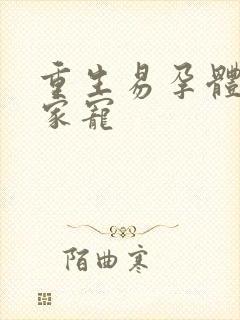 重生易孕體
家寵
陌曲寒